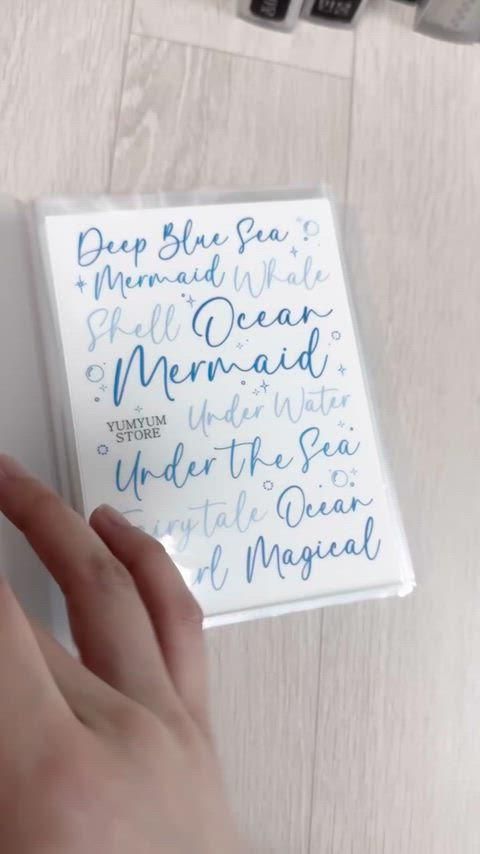 Deep Blue Sea
Mermaid Whale
Shell Ocean
Mermaid
Under Water
YUMYUM
STORE
Under the Sea
Fairytale Ocean
Magical